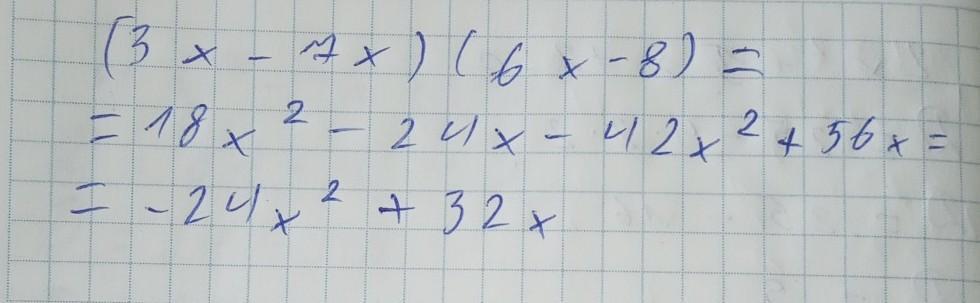 (3x - 7x)(6x - 8) =
= 18x² - 24x - 42x² + 56x =
= -24x² + 32x